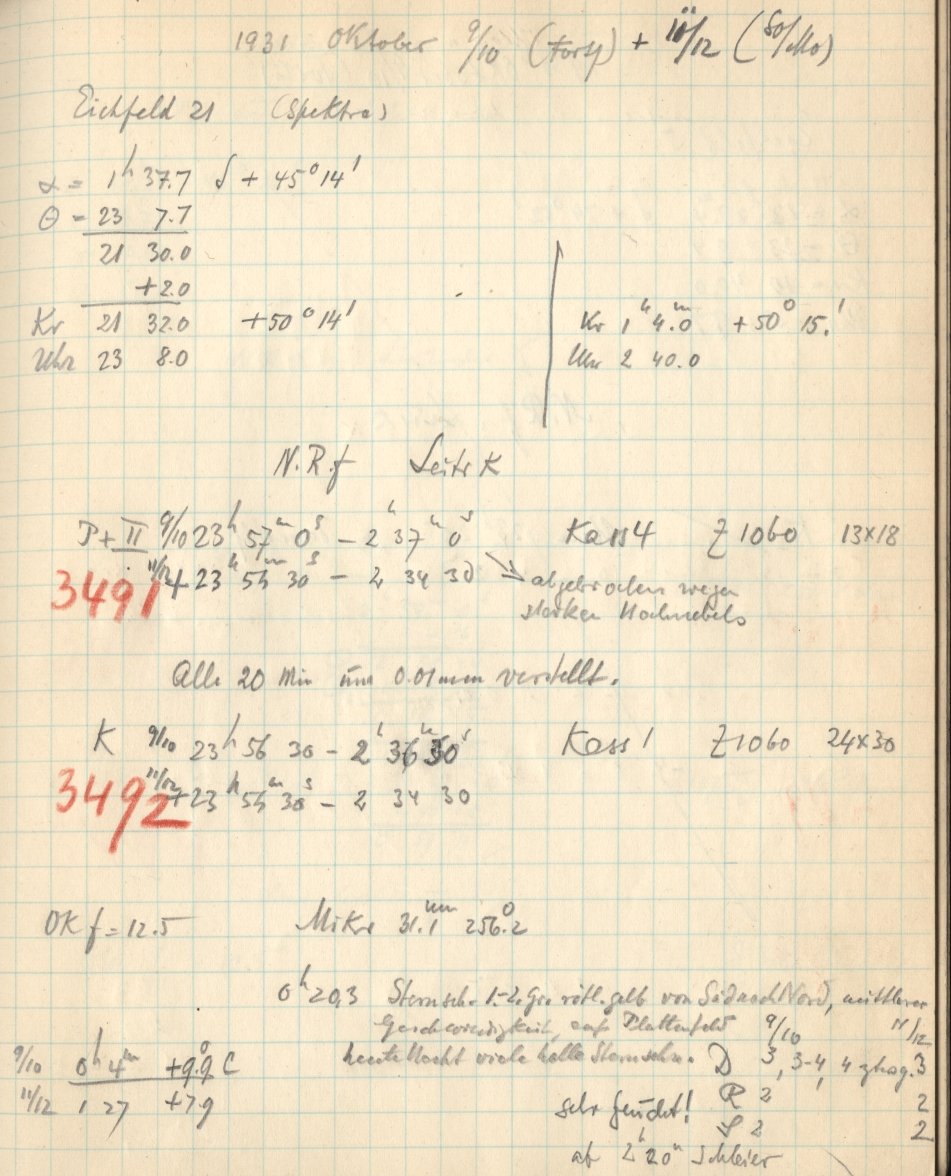 1931 Oktober 9/10 (Forts) + 11/12 (So/Mo)
Eichfeld 21 (Spektra)
α = 1h 37.7 δ + 45° 14'
Θ = 23 7.7
21 30.0
+2.0
Kr 21 32.0 +50° 14'
Uhr 23 8.0
Kr 1h 4m.0 +50° 15.'
Uhr 2 40.0
N.R.f Leitr K
P+II 9/10 23h 57m 0s – 2h 37m 0s Kass 4 Z 1060 13x18
3491 11/12 + 23h 55m 30s – 2 34 30 abgebrochen wegen
starken Hochnebels
Alle 20 Min um 0.01 mm verstellt.
K 9/10 23h 56 30 – 2h 36m 30s Kass 1 Z 1060 24x30
3492 11/12 + 23h 55m 30s – 2 34 30
OK f = 12.5 Mikr 31.1mm 256°.2
0h 20,3 Sternsch. 1.-2. Gr. rötl.gelb von Süd nach Nord, mittlerer
Geschwindigkeit, auf Plattenfeld 9/10 11/12
heute Nacht viele helle Sternschn. D 3, 3-4, 4 3
9/10 0h 4m +9°.9 C
R 2 2
11/12 1 27 +7.9
sehr feucht! S 2 2
ab 2h 20m Schleier